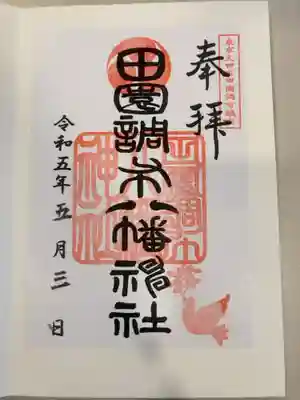 奉拝
田園調布八幡神社
令和五年五月三日